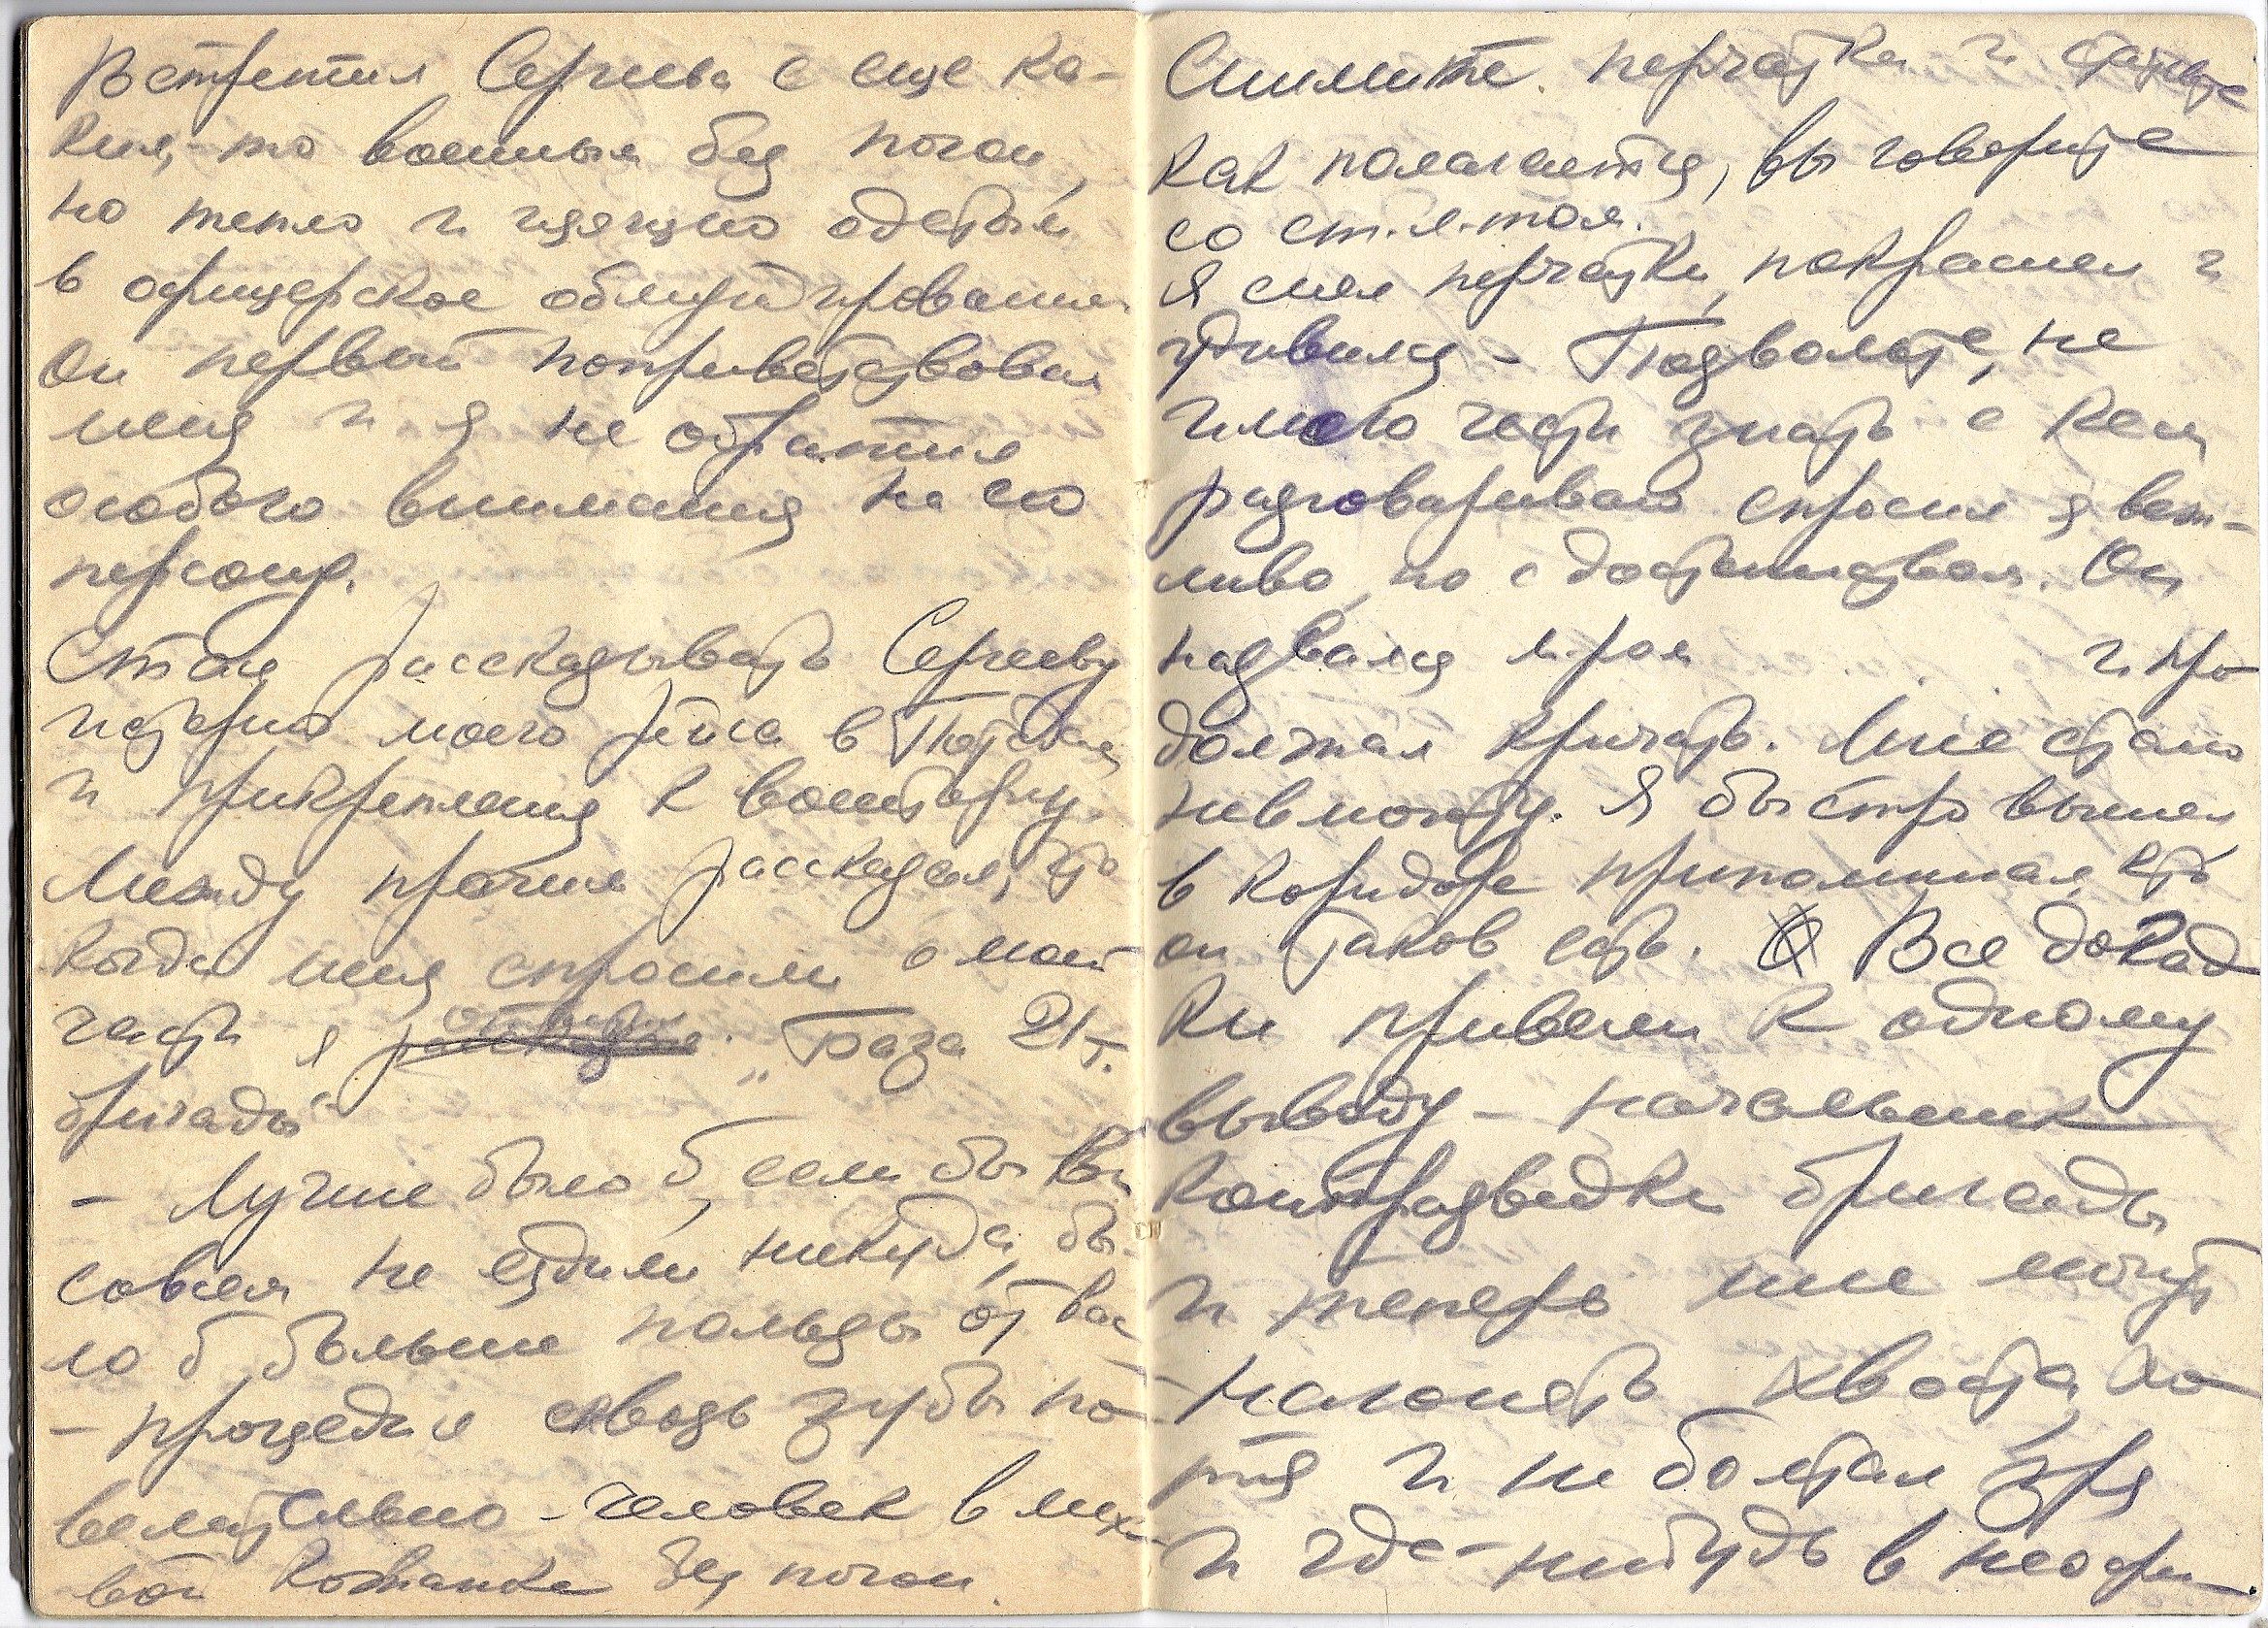 Встретил Сергеева с еще ка-
ким-то военным без погон,
но тепло и изящно одетым
в офицерское обмундирование
Он первый поприветствовал
меня и я не обратил
особого внимания на его
персону.
Стал рассказывать Сергееву
историю моего рейса в
и прикрепления к военторгу.
Между прочим рассказал, что
когда меня спросили о моей
части я ответил "База 21 т.
бригады"
- Лучше было б, если бы Вы
совсем не ездили никуда, бы-
ло б больше пользы от вас
- процедил сквозь зубы по-
велительно - человек в мехо-
вой кожанке без погон.
Снимите перчатки и станьте
как полагается, вы говорите
со ст. л-том.
Я снял перчатки, покраснел и
удивился - Позвольте, не
имею чести знать с кем
разговариваю спросил я веж-
ливо, но с достоинством. Он
назвался м-ром и про
должал кричать. Мне стало
невмоготу. Я быстро вышел
в коридор припоминая, кто
он таков есть. Все догад
ки привели к одному
выводу - начальник
контрразведки бригады
и теперь мне могут
- накопать хвоста, хо-
тя и не болтал зря
и где-нибудь в неофи-